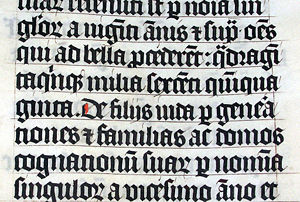 inar recenſiti ſt p noīa ſin
glor̄ a uigīti ānis & ſup̄ oēs
qui ad bella p̄cederēt: q̄dragī
taq̄inq milia ſexcēti quīqua
ginta. De filijs iuda p gene᷑a
tiones & familias ac domos
cognationū ſuar̄ p nomīa
ſingulor̄ a viceſimo āno et